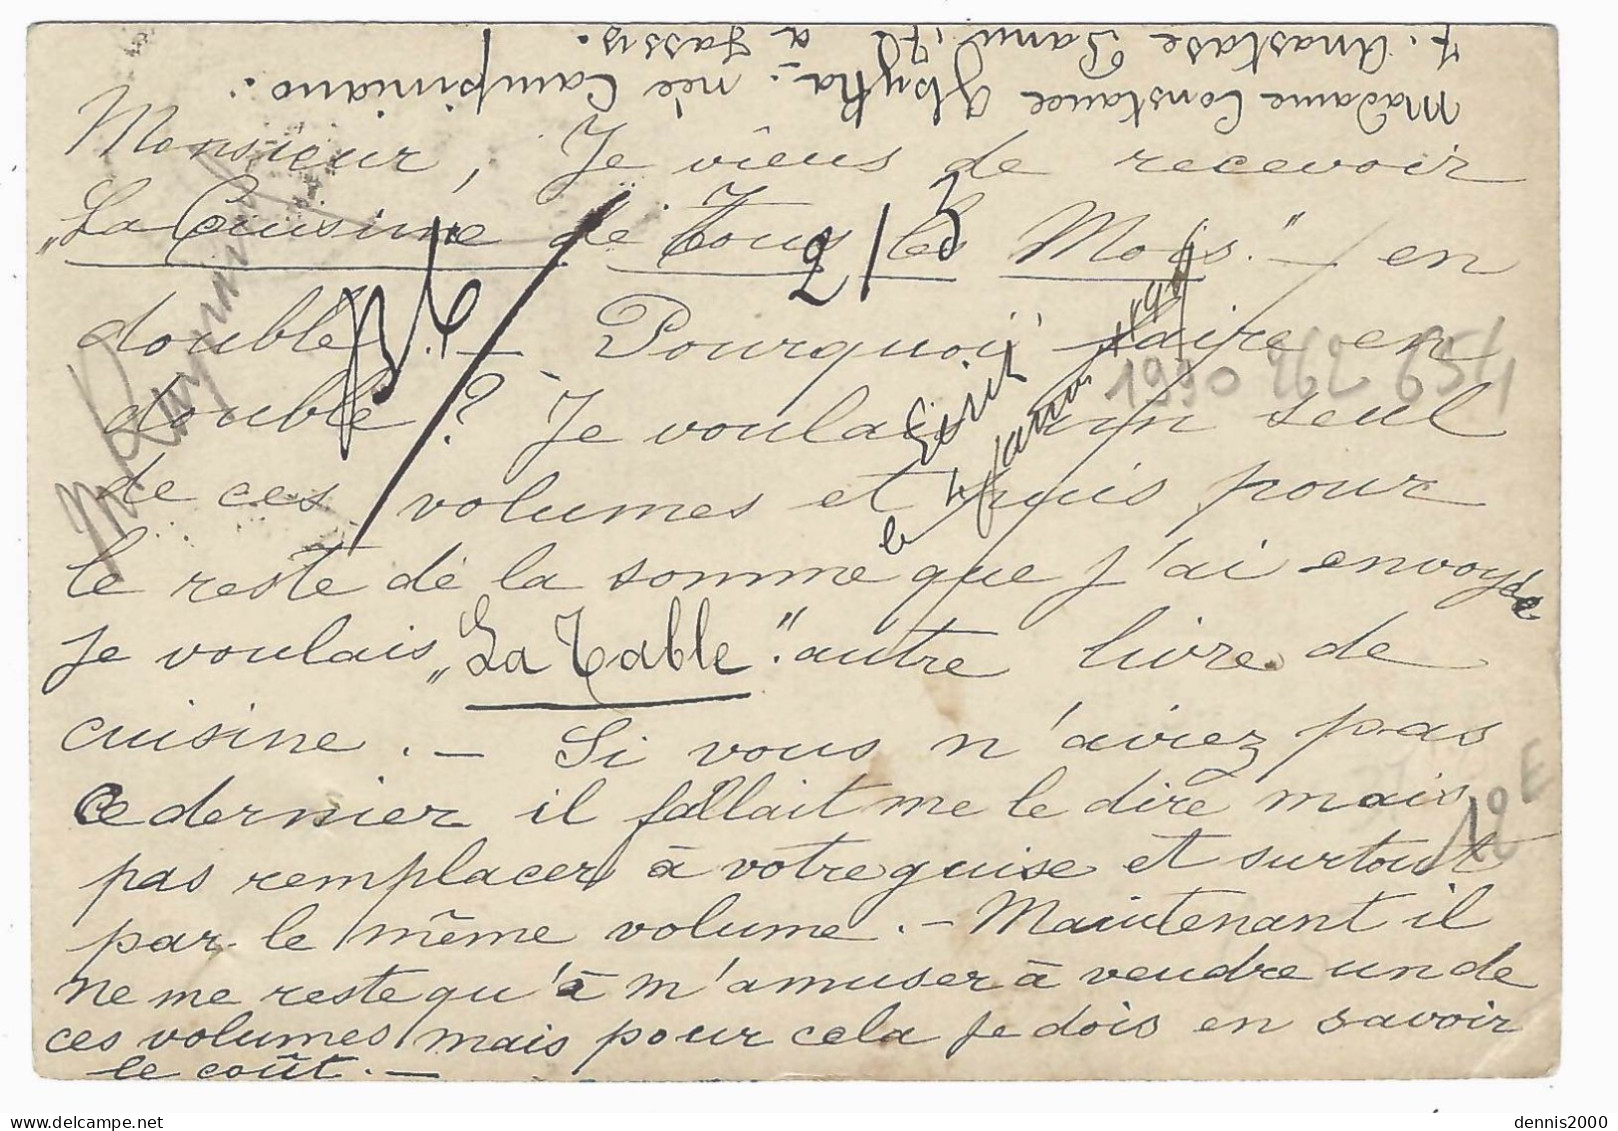 Monsieur, Je viens de recevoir
„La Cuisine de Tous les Mois." — en
double. — Pourquoi faire en
double? Je voulais un seul
de ces volumes et puis pour
le reste de la somme que j'ai envoyée
je voulais „La Table". autre livre de
cuisine. — Si vous n'aviez pas
ce dernier il fallait me le dire mais
pas remplacer à votre guise et surtout
par le même volume. — Maintenant il
ne me reste qu'à m'amuser à vendre un de
ces volumes mais pour cela je dois en savoir
le coût. —
Madame Constance née
Anastase à Jassy.
7/3
Ecrit
le 4
1990 262 654
12E
dennis2000